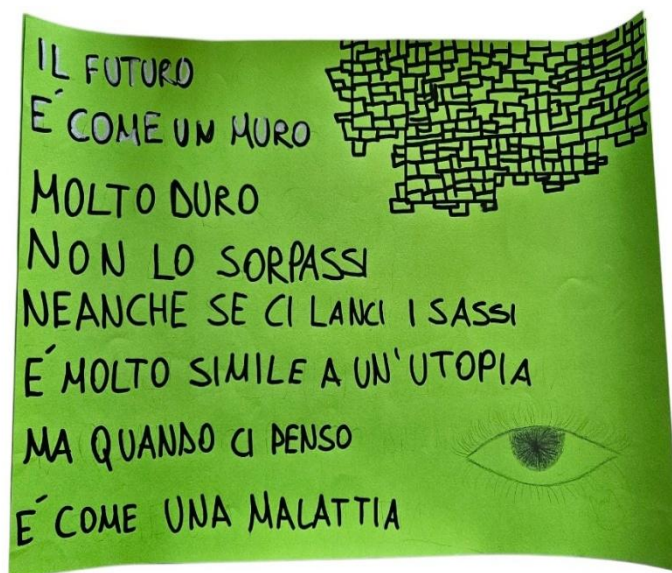 IL FUTURO
E´ COME UN MURO
MOLTO DURO
NON LO SORPASSI
NEANCHE SE CI LANCI I SASSI
E´ MOLTO SIMILE A UN'UTOPIA
MA QUANDO CI PENSO
E´ COME UNA MALATTIA